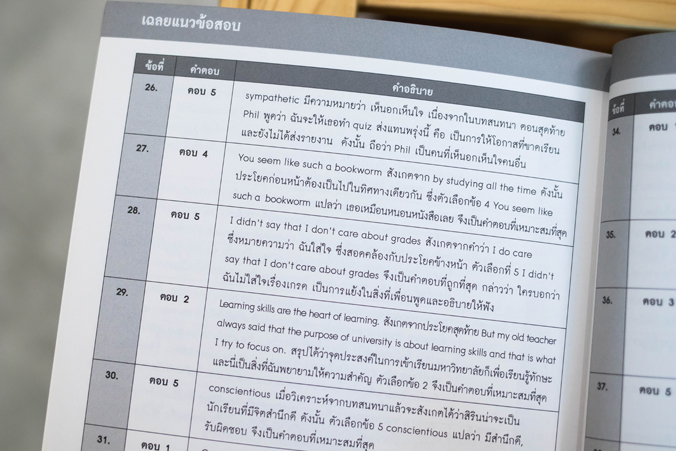 เฉลยแนวข้อสอบ
ข้อที่ คำตอบ คำอธิบาย
26. ตอบ 5 sympathetic มีความหมายว่า เห็นอกเห็นใจ เนื่องจากในบทสนทนา ตอนสุดท้าย
Phil พูดว่า ฉันจะให้เธอทำ quiz ส่งแทนพรุ่งนี้ คือ เป็นการให้โอกาสที่ขาดเรียน
และยังไม่ได้ส่งรายงาน ดังนั้น ถือว่า Phil เป็นคนที่เห็นอกเห็นใจคนอื่น
27. ตอบ 4 You seem like such a bookworm สังเกตจาก by studying all the time ดังนั้น
ประโยคก่อนหน้าต้องเป็นไปในทิศทางเดียวกัน ซึ่งตัวเลือกข้อ 4 You seem like
such a bookworm แปลว่า เธอเหมือนหนอนหนังสือเลย จึงเป็นคำตอบที่เหมาะสมที่สุด
28. ตอบ 5 I didn't say that I don't care about grades สังเกตจากคำว่า I do care
ซึ่งหมายความว่า ฉันใส่ใจ ซึ่งสอดคล้องกับประโยคข้างหน้า ตัวเลือกที่ 5 I didn't
say that I don't care about grades จึงเป็นคำตอบที่ถูกที่สุด กล่าวว่า ใครบอกว่า
ฉันไม่ใส่ใจเรื่องเกรด เป็นการแย้งในสิ่งที่เพื่อนพูดและอธิบายให้ฟัง
29. ตอบ 2 Learning skills are the heart of learning. สังเกตจากประโยคสุดท้าย But my old teacher
always said that the purpose of university is about learning skills and that is what
I try to focus on. สรุปได้ว่าจุดประสงค์ในการเข้าเรียนมหาวิทยาลัยก็เพื่อเรียนรู้ทักษะ
และนี่เป็นสิ่งที่ฉันพยายามให้ความสำคัญ ตัวเลือกข้อ 2 จึงเป็นคำตอบที่เหมาะสมที่สุด
30. ตอบ 5 conscientious เมื่อวิเคราะห์จากบทสนทนาแล้วจะสังเกตได้ว่าสิรินน่าจะเป็น
นักเรียนที่มีจิตสำนึกดี ดังนั้น ตัวเลือกข้อ 5 conscientious แปลว่า มีสำนึกดี,
รับผิดชอบ จึงเป็นคำตอบที่เหมาะสมที่สุด
31. ตอบ 1
ข้อที่
34. ตอบ
35. ตอบ 2
36. ตอบ 3
37. ตอบ 5